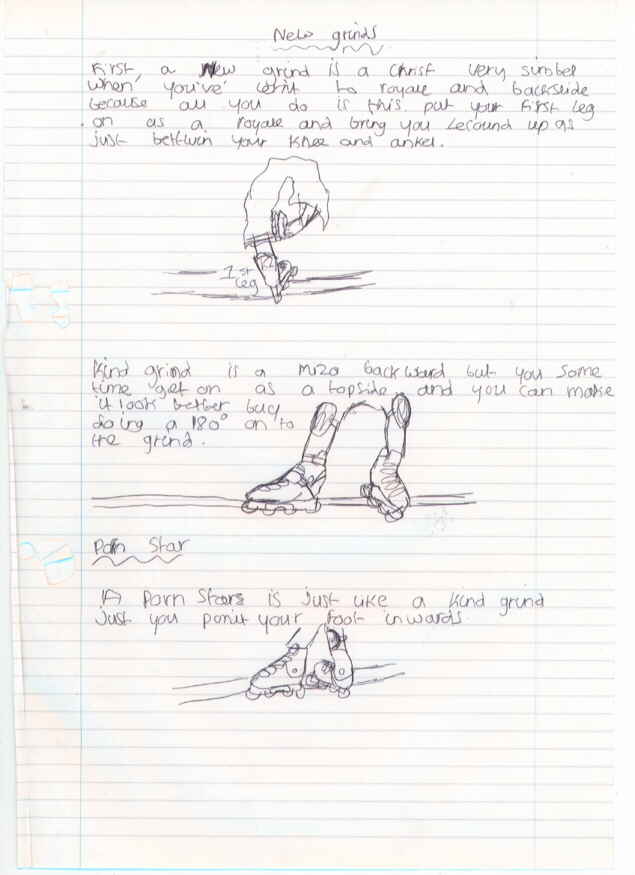 New grinds
First, a New grind is a Christ very simbel
when you've lernt to royale and backslide
because all you do is this. put your first leg
on as a royale and bring you secound up as
just bettwin your knee and ankel.
1st
leg
Kind grind is a Mizo backward but you some
time get on as a topside and you can make
it look better buy
doing a 180° on to
the grind.
Porn Star
A Porn Stars is just like a kind grind
just you ponit your foot inwards.